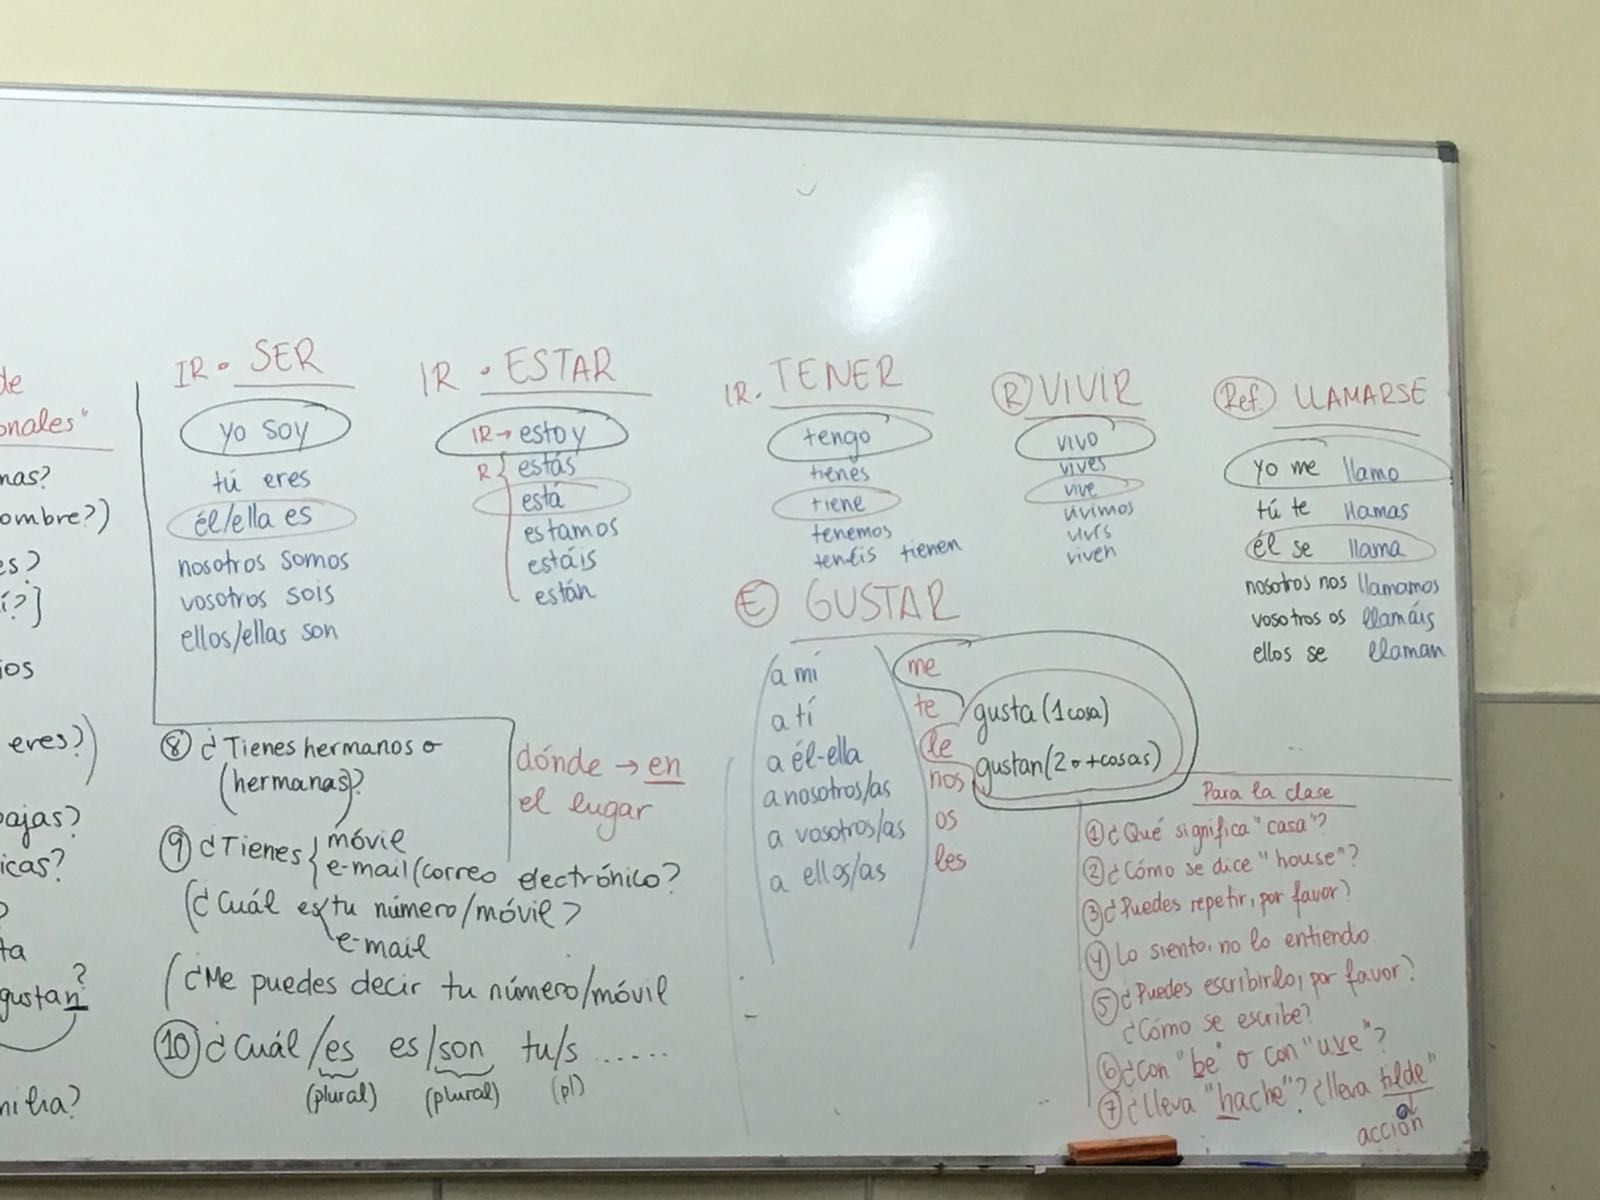 de
onales"
mas?
ombre?)
es?
í?]
ios
eres?)
bajas?
icas?
?
ta
gustan?
milia?
IR. SER
yo soy
tú eres
él/ella es
nosotros somos
vosotros sois
ellos/ellas son
IR. ESTAR
IR → estoy
R { estás
está
estamos
estáis
están
IR. TENER
tengo
tienes
tiene
tenemos
tenéis tienen
(R) VIVIR
vivo
vives
vive
vivimos
vivís
viven
(Ref.) LLAMARSE
yo me llamo
tú te llamas
él se llama
nosotros nos llamamos
vosotros os llamáis
ellos se llaman
(E) GUSTAR
a mí me
a tí te gusta (1 cosa)
a él-ella le gustan (2 o + cosas)
a nosotros/as nos
a vosotros/as os
a ellos/as les
⑧ ¿Tienes hermanos o
(hermanas)?
dónde → en
el lugar
⑨ ¿Tienes { móvil
e-mail (correo electrónico?
(¿Cuál es tu número/móvil?
e-mail
(¿Me puedes decir tu número/móvil
⑩ ¿Cuál/es es/son tu/s ......
(plural) (plural) (pl)
Para la clase
① ¿Qué significa "casa"?
② ¿Cómo se dice "house"?
③ ¿Puedes repetir, por favor?
④ Lo siento, no lo entiendo.
⑤ ¿Puedes escribirlo, por favor?
¿Cómo se escribe?
⑥ ¿Con "be" o con "uve"?
⑦ ¿lleva "hache"? ¿lleva tilde"
acción